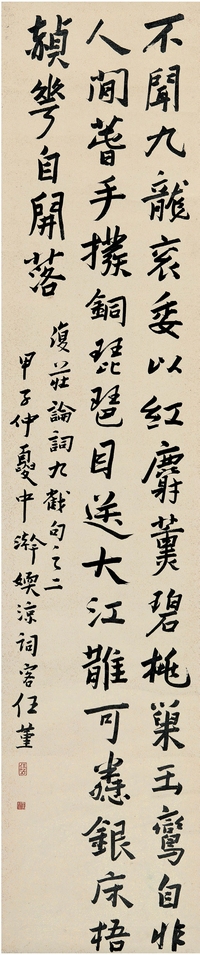 不聞九龍袞委以紅麝薰碧桃巢玉鸞自非
人間手撲銅琵琶目送大江可銀床梧
頳萼自開落
復莊論詞九截句之二
甲子仲夏中澣媆涼詞客任堇